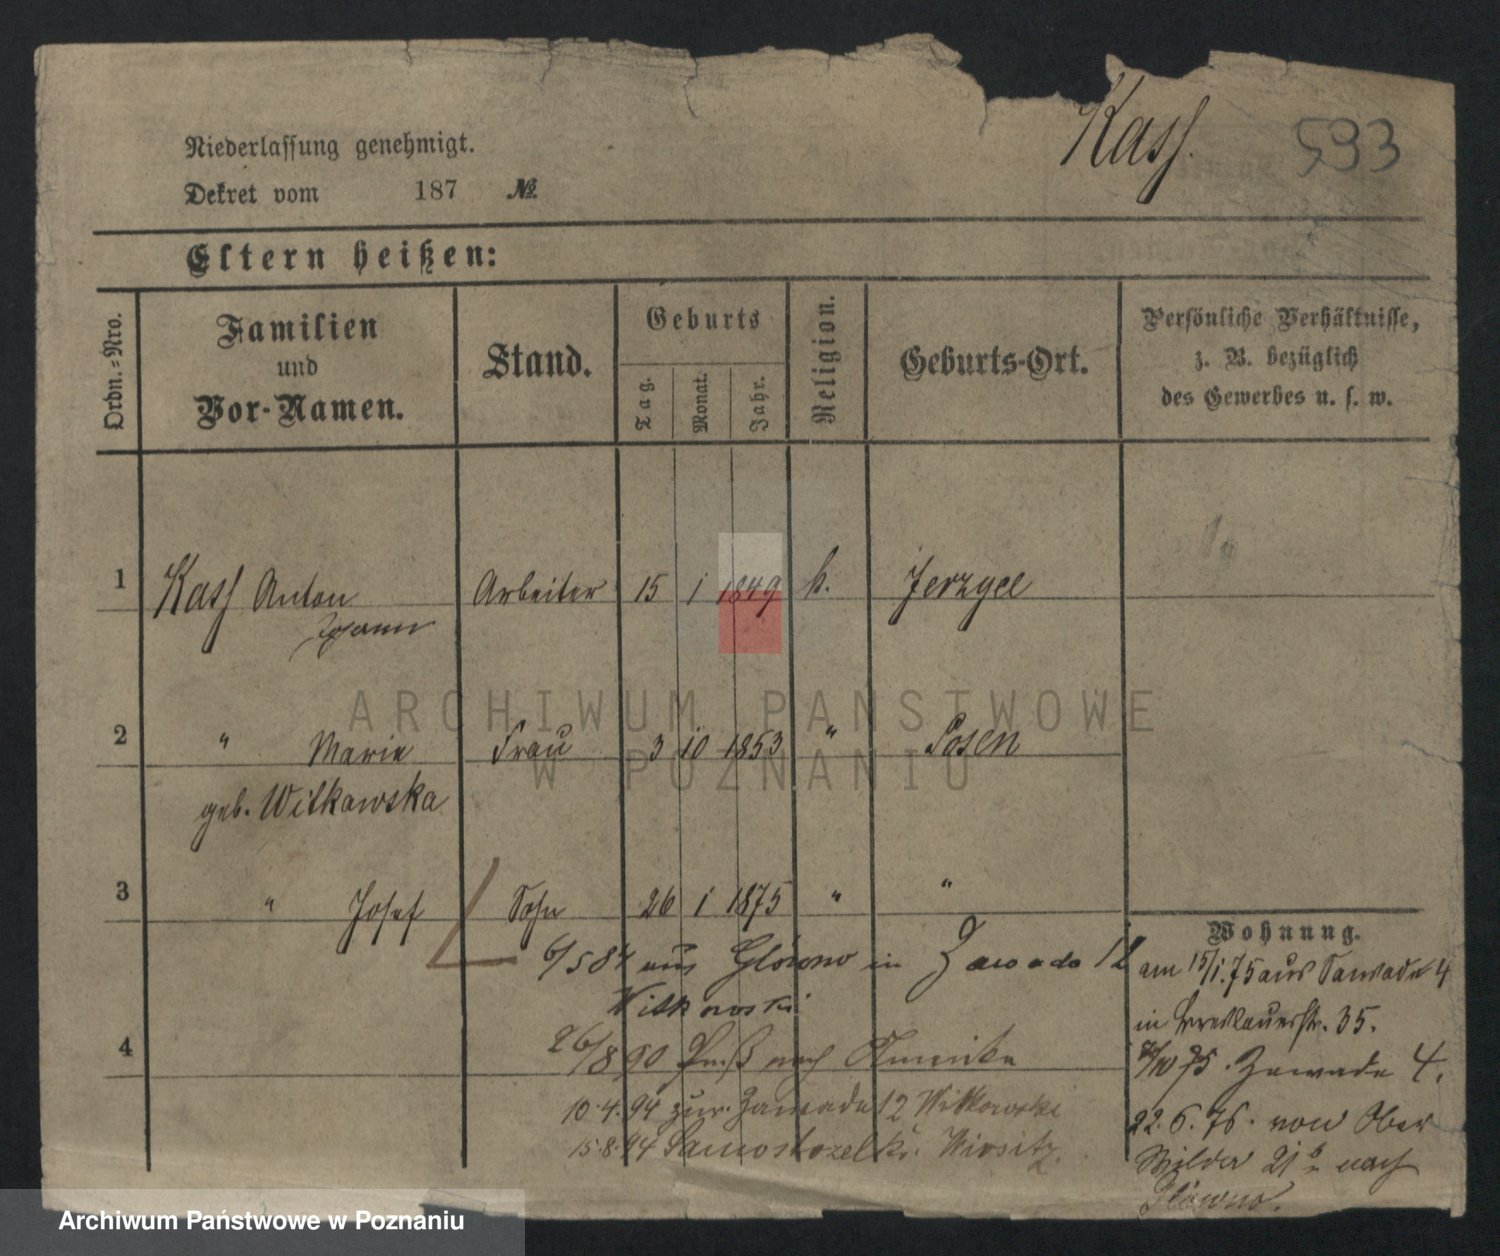 Kass. 533
Niederlassung genehmigt.
Dekret vom 187 №
Eltern heißen:
Ordn.=Nro.
Familien
und
Vor-Namen.
Stand.
Geburts
Tag.
Monat.
Jahr.
Religion.
Geburts-Ort.
Persönliche Verhältnisse,
z. B. bezüglich
des Gewerbes u. s. w.
1 Kass Anton Arbeiter 15 1 1849 k. Jerzyce
Johann
2 " Marie Frau 3 10 1853 " Posen
geb. Witkowska
3 " Josef Sohn 26 1 1875 " "
Wohnung.
am 15/1.75 aus Zawade 4
in Breslauerstr. 35.
/10 75. Zawade 4.
22.6.76. von Ober
Wilda 21 nach
Glówno.
6/5 87 aus Glówno in Zawada 12
Witkowski
4 26/8 90 nach
10.4.94 zur. Zawade 12 Witkowski
15.8.94 Samostrzel Kr. Wirsitz.
ARCHIWUM PAŃSTWOWE
W POZNANIU
Archiwum Państwowe w Poznaniu